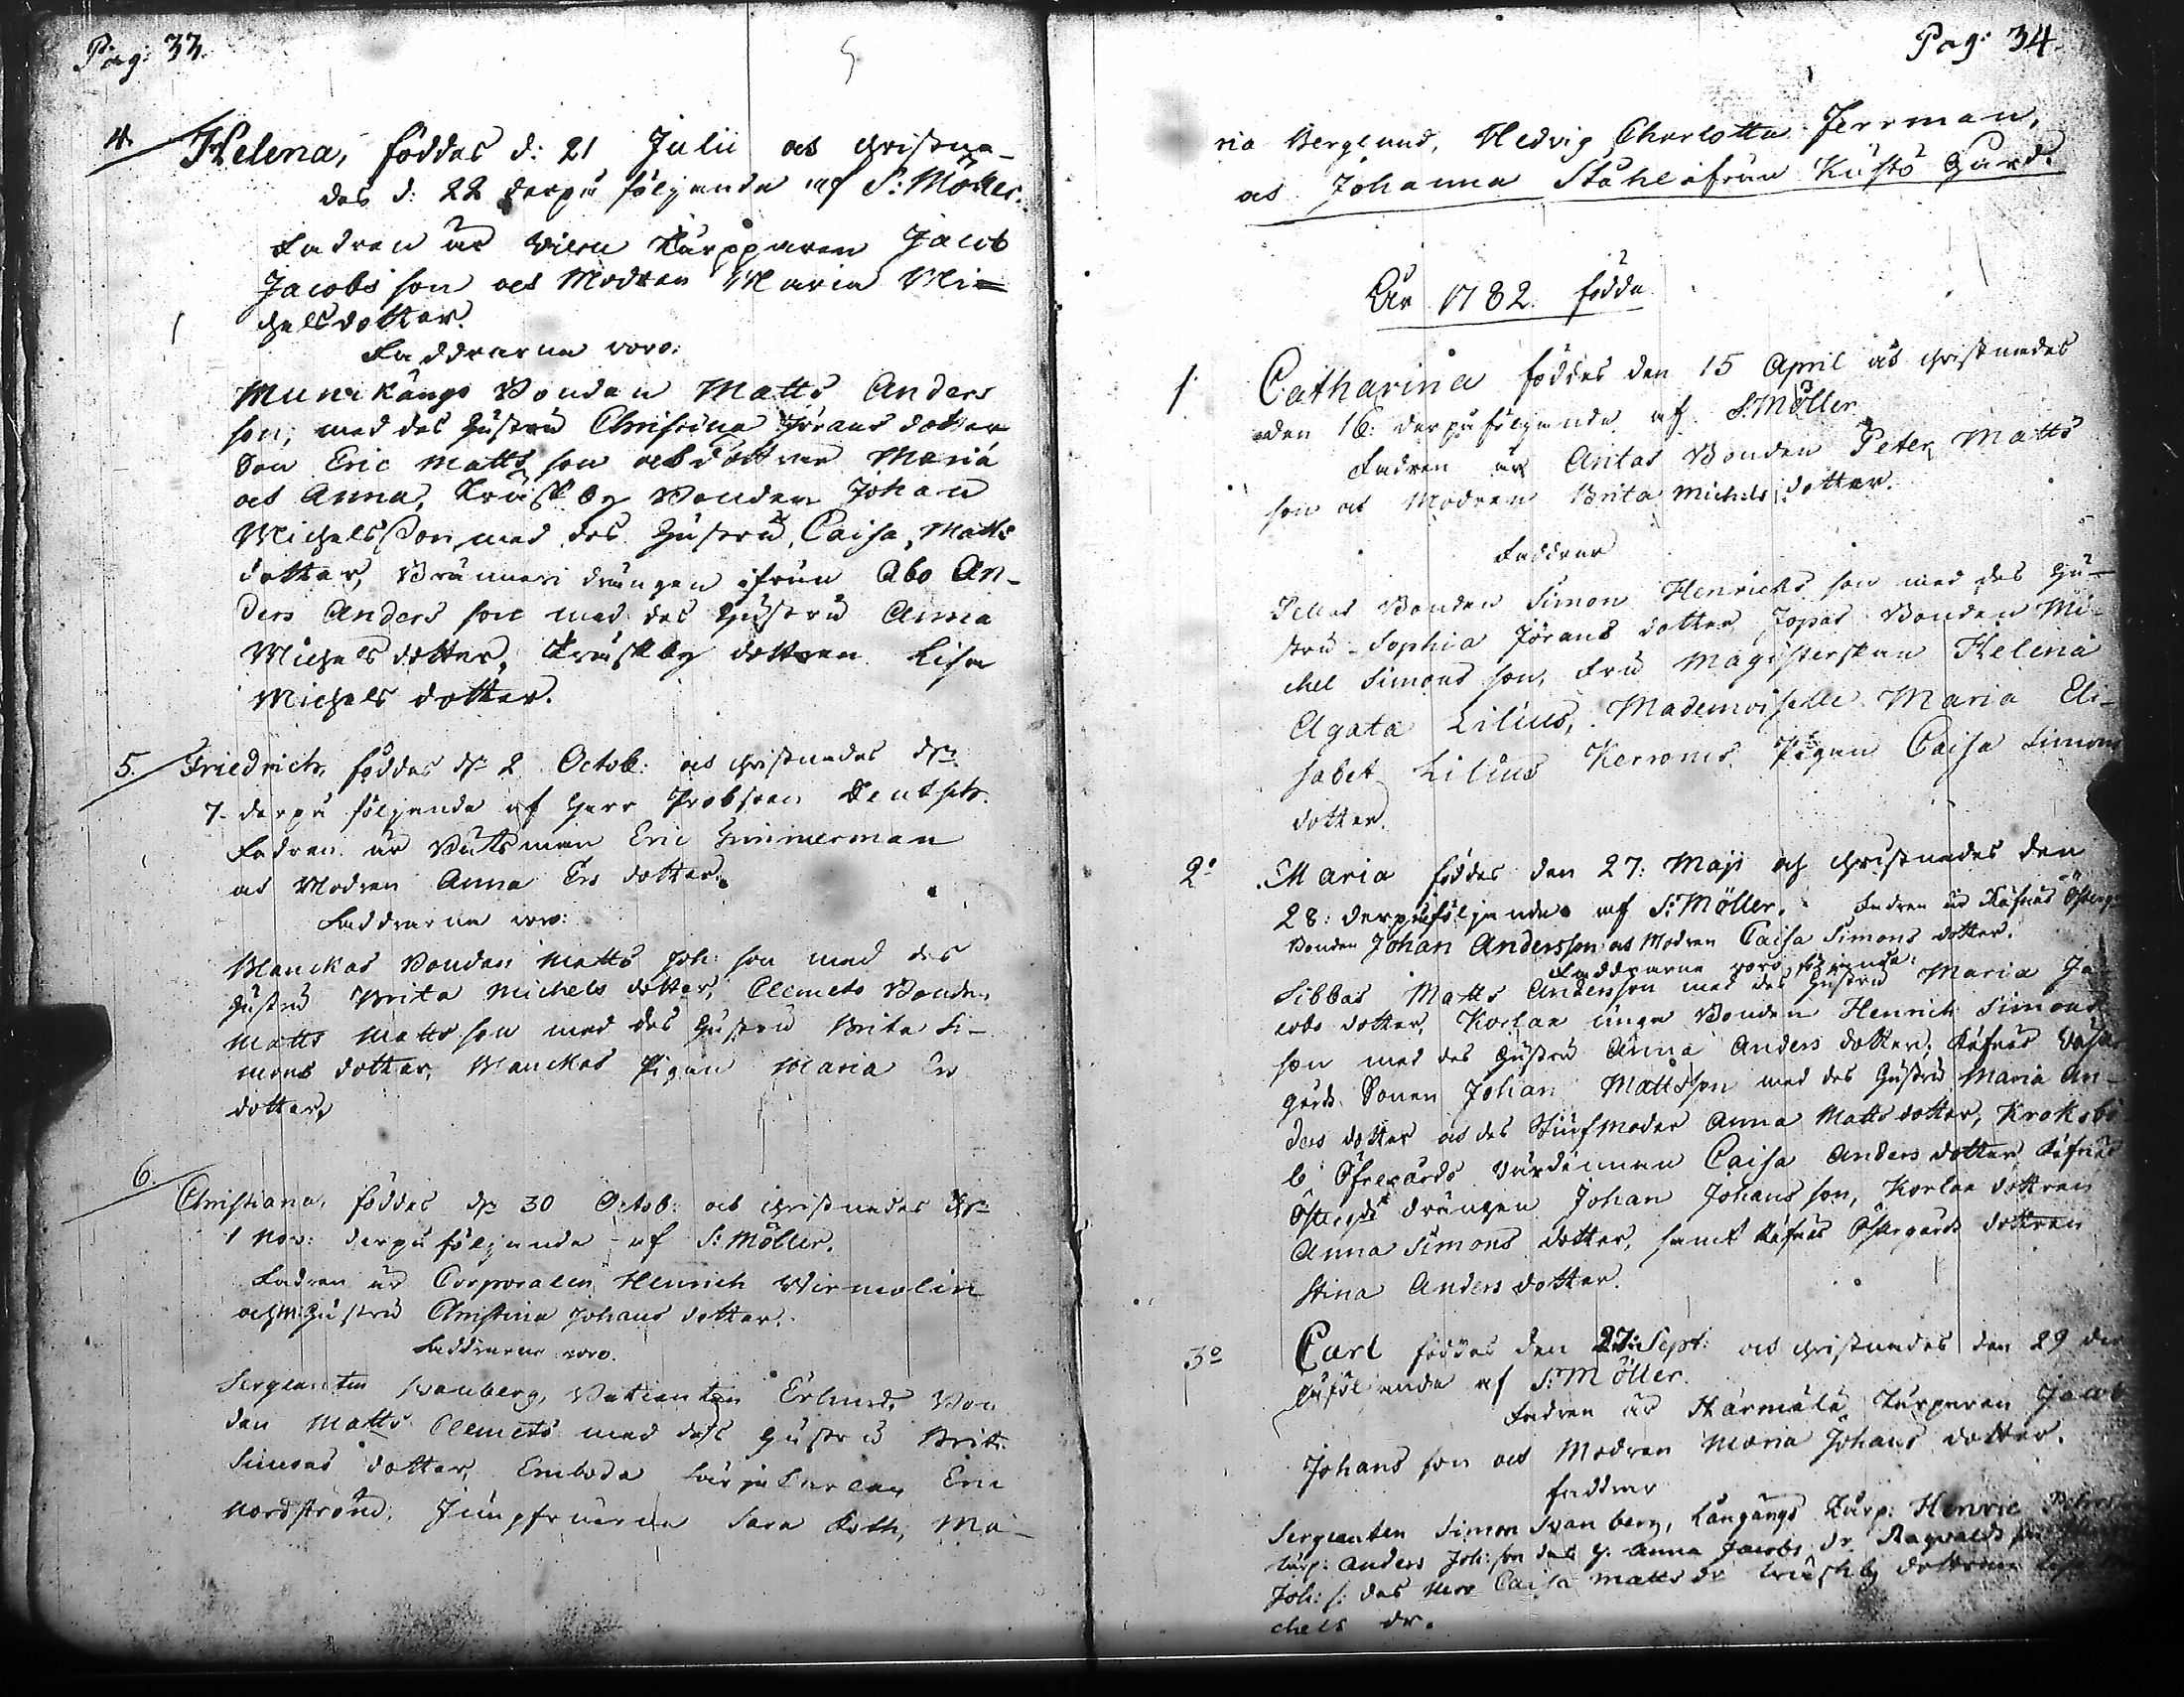 Pag: 33.
4. Helena, föddes d: 21 Julii och christna-
des d: 22 derpå följande af S: Möller.
Fadren är Torpparen Jacob
Jacobs son och Modren Maria Mi=
chelsdotter.
Faddrarne voro:
Munckängs Bonden Matts Anders
son, med des Hustru Christina Jörans dotter
Son Eric Matts son och döttrar Maria
och Anna, Träskby Bonden Johan
Michelsson med des Hustru, Caisa, Matts
dotter, Bränneri drängen ifrån Åbo An-
ders Anders son med des Hustru Anna
Michels dotter, Träskby dottren Lisa
Michels dotter.
5. Friedrich, föddes d: 2 Octob: och christnades d:
7. derpå följande af Herr Probsten Deutsch.
Fadren är Båtsman Eric Zimmerman
och Modren Anna Ers dotter.
Faddrarne voro:
Manckas Bonden Matts Joh: son med des
Hustru Brita Michels dotter, Clemets Bonden
Matts Matts son med des Hustru Brita Si-
mons dotter, Manckas Pigan Maria Ers
dotter,
6. Christiana, föddes d: 30 Octob: och christnades d:
1 Nov: derpå följande af S: Möller.
Fadren är Corporalen Henrich Wirmolin
och m: Hustru Christina Johans dotter.
Faddrarne voro.
Sergeanten Svanberg, Erlund, Bon
den Matts Clemets med dess Hustru Brita
Simons dotter, Eric
Nordström, Jungfruerne Sara Roth, Ma-
Pag: 34.
ria Berglund, Hedvig Charlotta Jerrman,
och Johanna Ståhl ifrån Kustö Gård.
År 1782. födde
1. Catharina föddes den 15 April och christnades
den 16: derpåföljande af S: Möller
Fadren är Antas Bonden Peter Matts
son och Modren Brita Michels dotter.
Faddrar
Pellas Bonden Simon Henrichs son med des Hu-
stru Sophia Jörans dotter, Jopas Bonden Mi-
chel Simons son, Fru Magisterskan Helena
Agata Lilius, Mademoiselle Maria Eli-
sabet Lilius Pigan Caisa Simons
dotter.
2o Maria föddes den 27: Maji och christnades den
28: derpåföljande af S: Möller. Fadren är Räfnäs Österg:
Bonden Johan Andersson och Modren Caisa Simons dotter.
Faddrarne voro följande:
Sibbas Matts Andersson med des Hustru Maria Ja-
cobs dotter, Korlax unga Bonden Henrich Simons
son med des Hustru Anna Anders dotter, Räfnäs Väster
gårds Sonen Johan Mattsson med des Hustru Maria An-
ders dotter och des Stiufmoder Anna Matts dotter, Kroksbö
le Öfregårds Värdinnan Caisa Anders dotter Räfnäs
Östergds drängen Johan Johans son, Korlax dottren
Anna Simons dotter, samt Räfnäs Östergårds dottren
Stina Anders dotter.
3o Carl föddes den 27: Sept: och christnades den 29 der
påföljande af S: Möller.
Fadren är Härmälä Torparen Jacob
Johans son och Modren Maria Johans dotter.
Faddrar
Sergeanten Simon Svanberg, Långängs Torp: Henric
Torp: Anders Joh: son des H: Anna Jacobs Dr. Ragvalds
Joh: s: des Mor Caisa Matts dr Träskby dottren
chels dr.